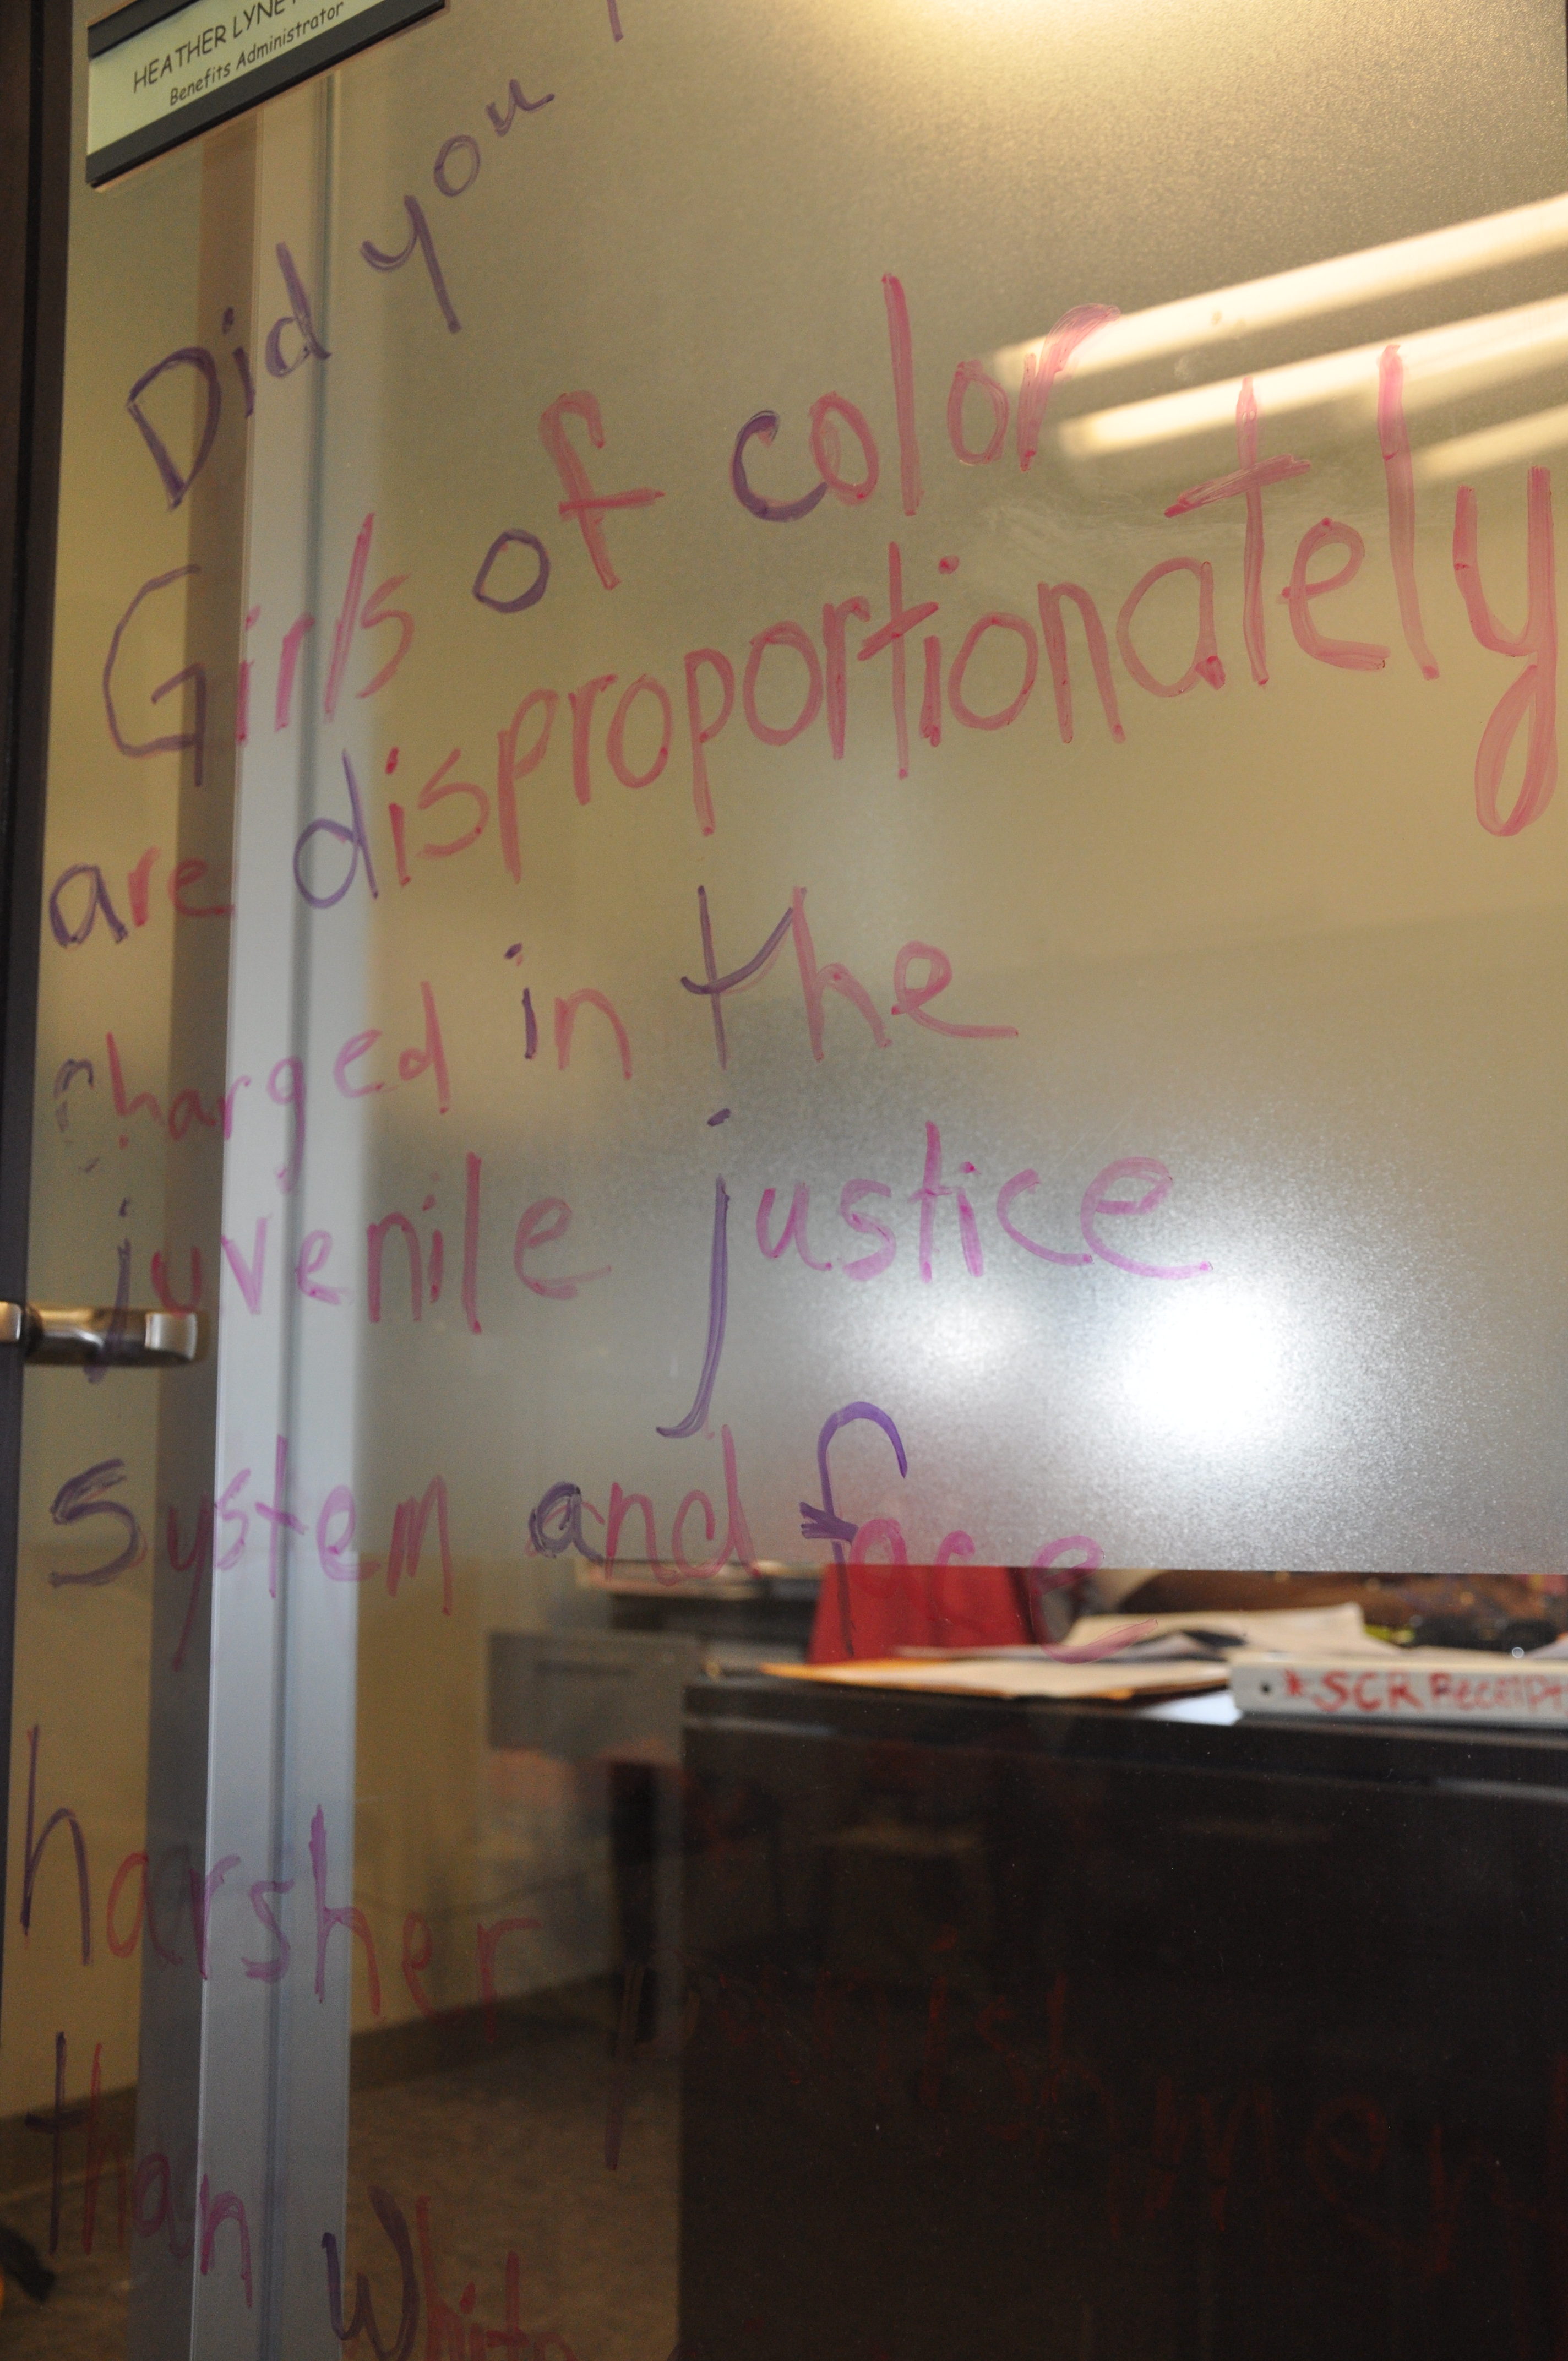 HEATHER
Benefits Administrator
Did you
Girls of color
are disproportionately
charged in the
juvenile justice
system and face
harsher punishment
than White
SCR RECEIPT